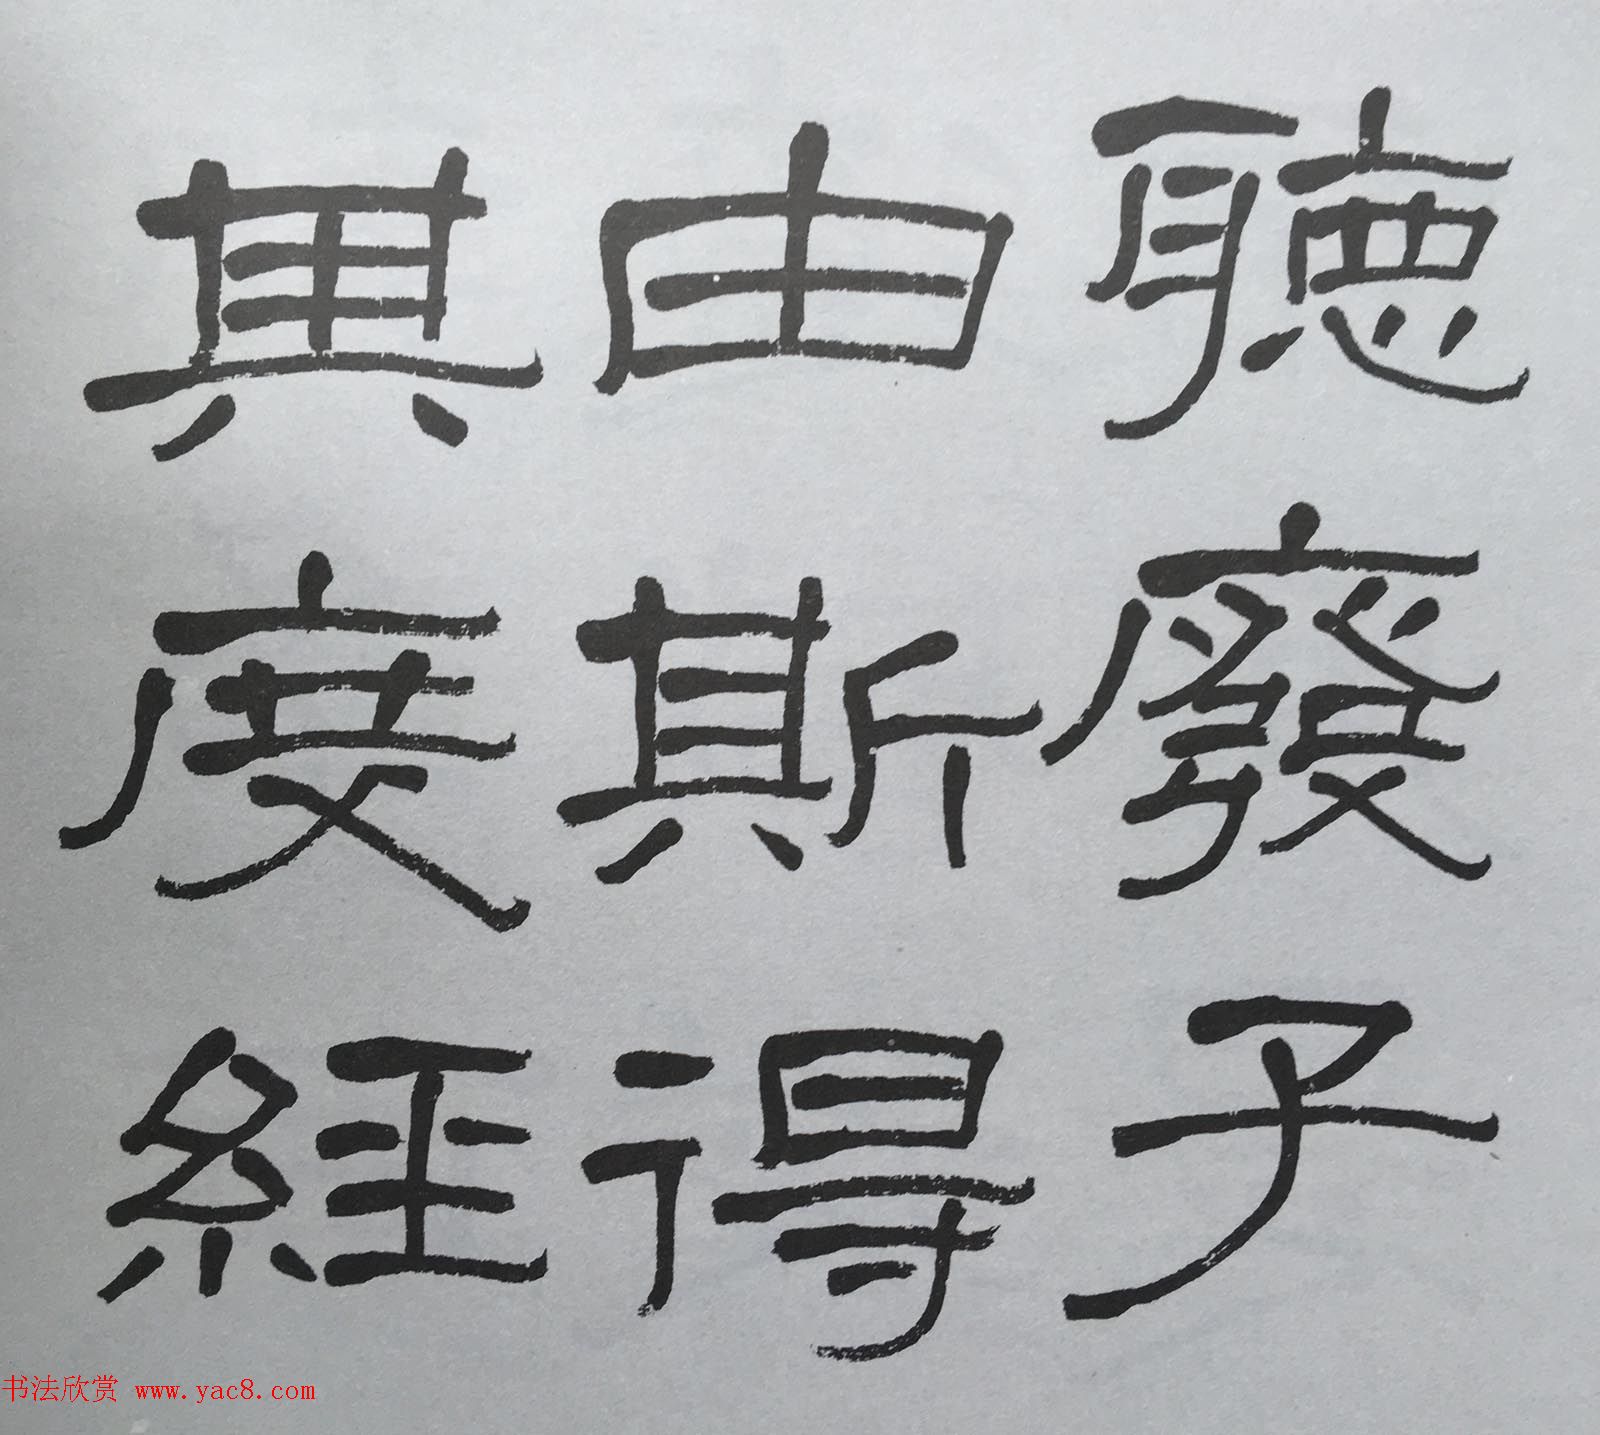 聽廢子
由斯得
典度經
书法欣赏 www.yac8.com